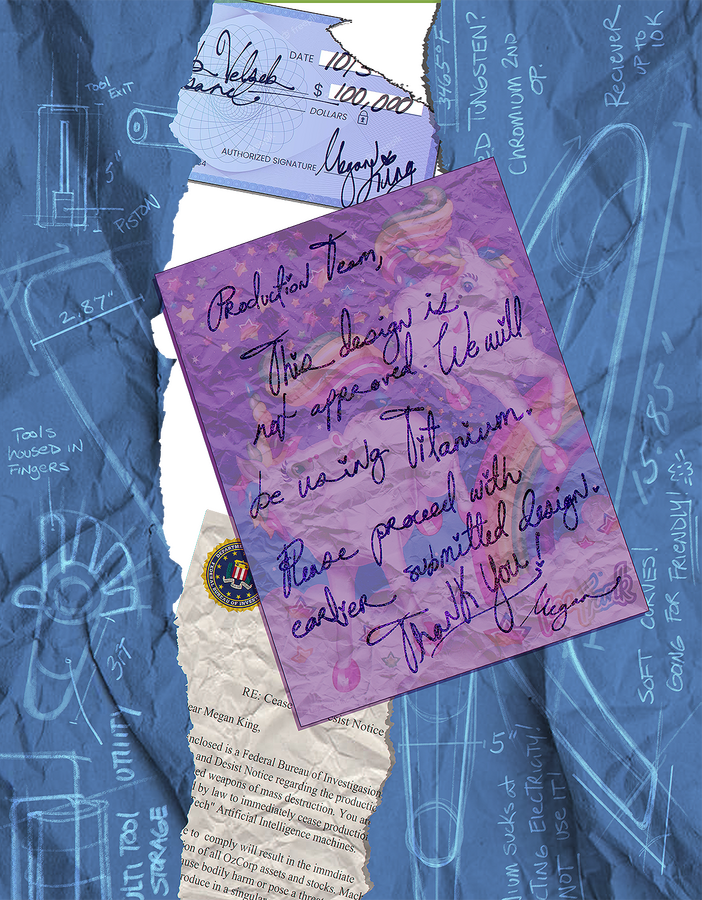 DATE 10/3
$ 100,000
DOLLARS
AUTHORIZED SIGNATURE Megan King
TOOL
EXIT
5"
PISTON
2.87"
3465°F
TUNGSTEN?
CHROMIUM 2ND
OP.
RECIEVER
UP TO
10K
Production Team,
This design is
not approved. We will
be using Titanium.
Please proceed with
earlier submitted design.
Thank You!
Megan
TOOLS
HOUSED IN
FINGERS
15.85"
SOFT CURVES!
GOING FOR FRIENDLY!
3 FT
UTILITY
ULTI TOOL
STORAGE
5"
IUM SUCKS AT
CTING ELECTRICITY!
NOT USE IT!
RE: Cease
esist Notice
ear Megan King,
nclosed is a Federal Bureau of Investigation
and Desist Notice regarding the productio
ed weapons of mass destruction. You ar
by law to immediately cease productio
ech" Artificial Intelligence machines.
e to comply will result in the immdiate
on of all OzCorp assets and stocks. Mach
use bodily harm or pose a threa
roduce in a singular